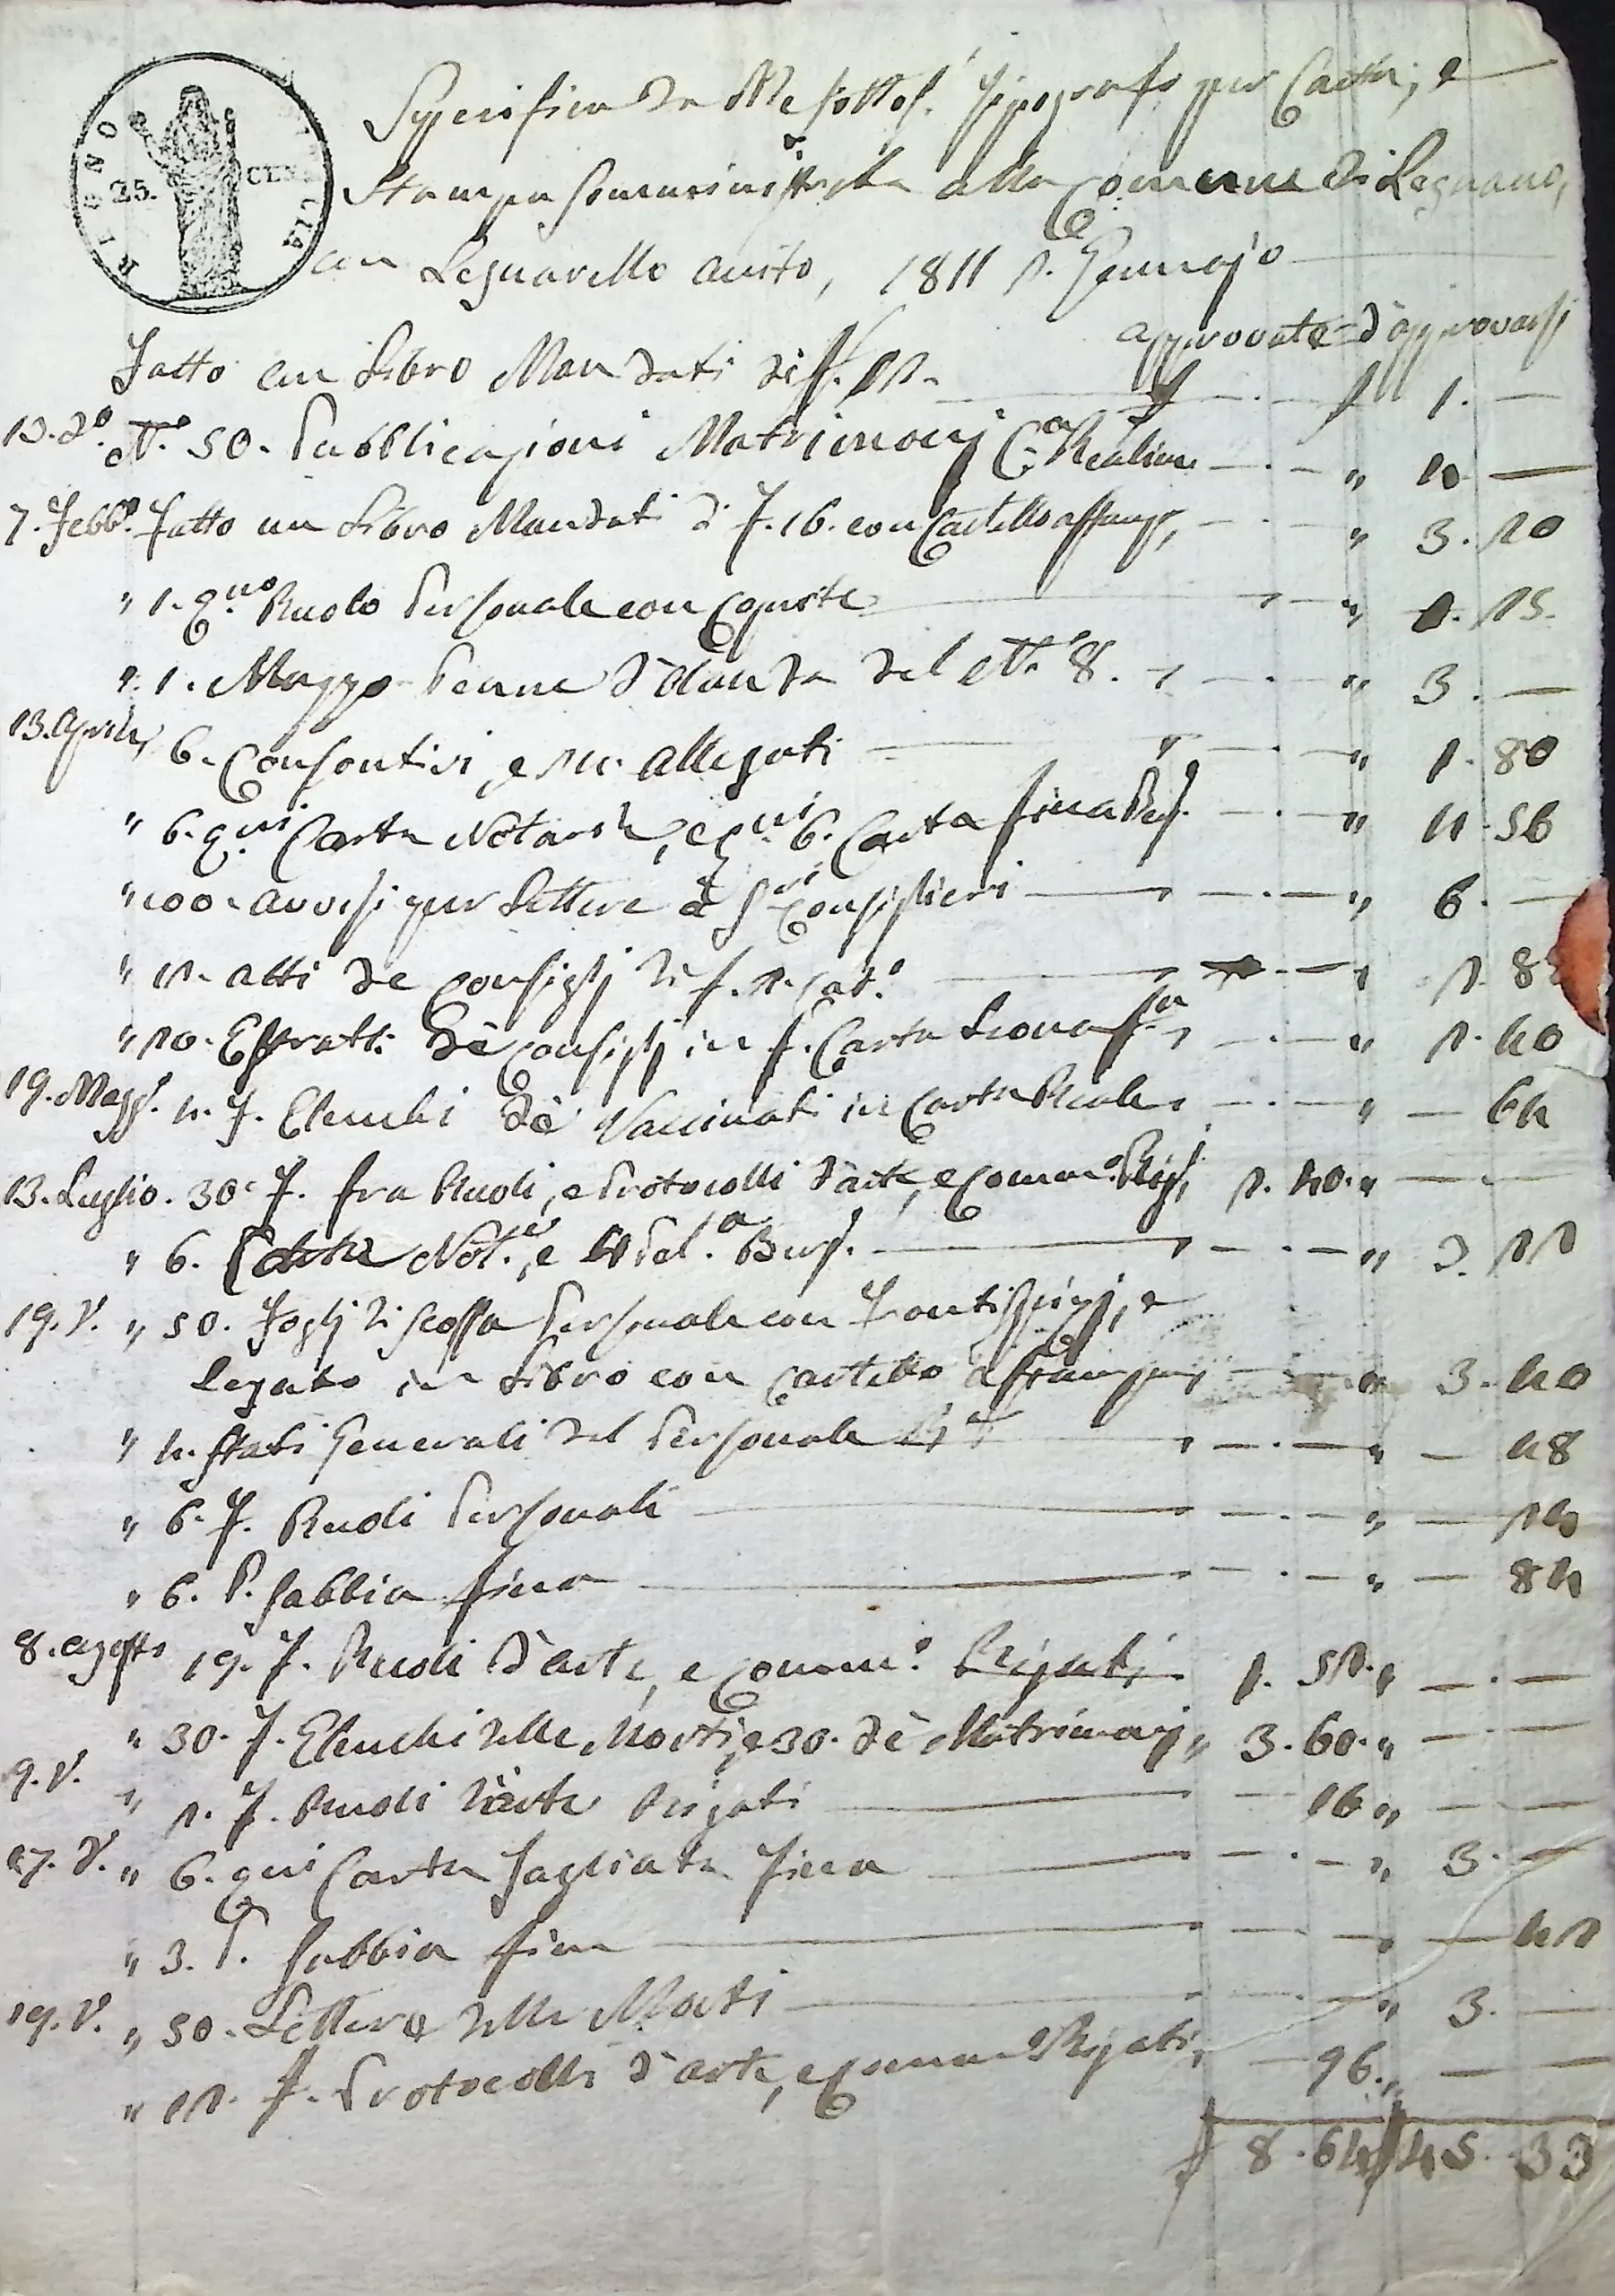 REGNO
25. CEN
CIA
Specifica da Me sottos. Tipografo per Carta, e
Stampa somministrata alla Comune di Legnano,
con Legnarello unito, 1811 2. Gennajo
approvate d'approvarsi
Fatto un Libro Mandati di f. 12. 1. —
12. do. N.o 50. Pubblicazioni Matrimonj Ca. Realina " 4. —
7. Febb.o Fatto un Libro Mandati di f. 16. con Cartello " 3. 20
" 1. q.no Ruolo Personale con Coperte " . 25.
" 1. Mazzo Penne d'Olanda del N.o 8. " 3. —
13. Aprile, 6. Consontivi, e 24. Allegati " 1. 80
" 6. q.ni Carta Notarile, e q.ni 6. Carta fina " 11. 56
" 100. Avvisi per Lettere a' S.ri Consiglieri " 6. —
" 12. Atti de Consiglj di f. 2. " 2. 8
" 20. Estratti de Consiglj in f. Carta " 2. 40
19. Magg.o 4. f. Elenchi de' Vaccinati in Carta Reale " — 64
13. Luglio. 30. f. fra Ruoli, e Protocolli d'arte, e Comm.o Rig. 2. 40. " —
" 6. Carta Not.e, e " 2. 22
19. d. " 50. Foglj di scossa Personale con Frontispizj, e
Legato in Libro con Cartello " 3. 40
" 4. Stati Generali del Personale " — 48
" 6. f. Ruoli Personali " — 24
" 6. P. Sabbia fina " — 84
8. Agosto 19. f. Ruoli d'arte, e Comm.o Rigati 1. 52. " — . —
" 30. f. Elenchi delle Morti, e 30. de' Matrimonj, 3. 60. " —
9. d. " 2. f. Ruoli d'arte Rigati — 16 " — —
17. d. " 6. q.ni Carta Tagliata Fina " 3. —
" 3. P. Sabbia fina " — 42
19. d. " 50. Lettere delle Morti " 3. —
" 12. f. Protocolli d'arte, e Comm. Rigati, — 96. " — —
8. 64 45. 33